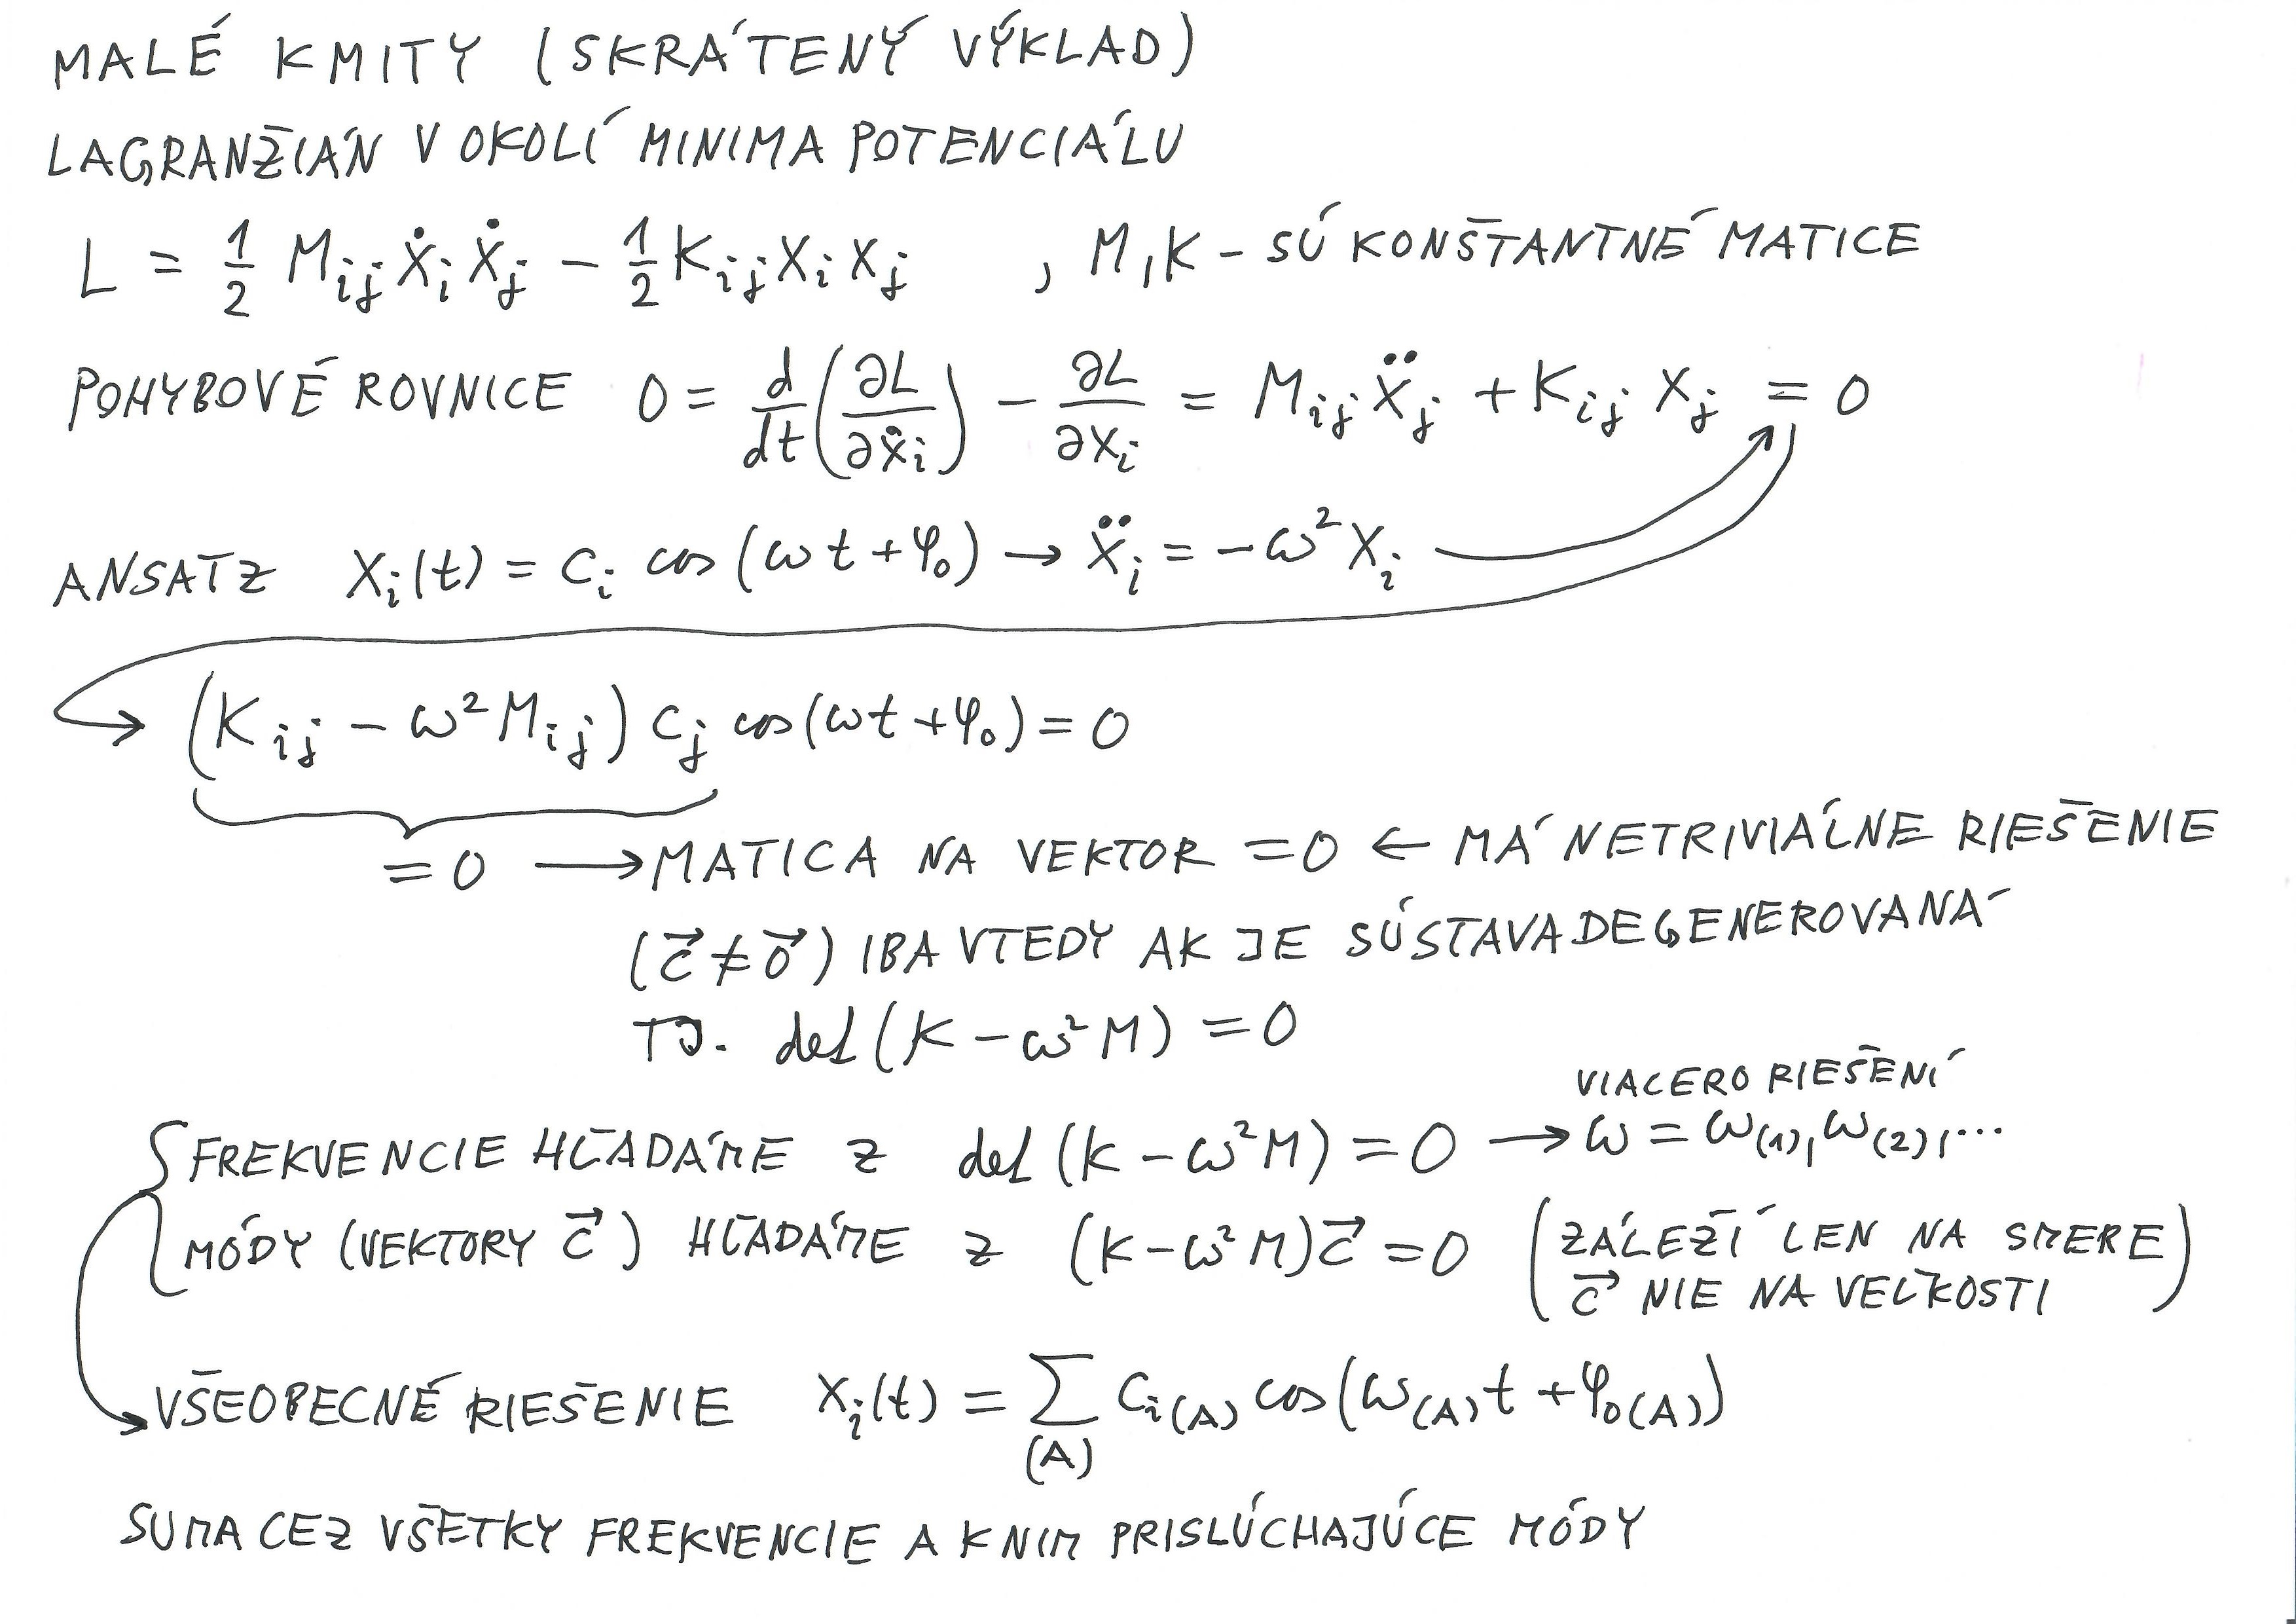 MALÉ KMITY (SKRÁTENÝ VÝKLAD)
LAGRANŽIÁN V OKOLÍ MINIMA POTENCIÁLU
L = 1/2 Mij ẋi ẋj − 1/2 Kij xi xj , M, K - SÚ KONŠTANTNÉ MATICE
POHYBOVÉ ROVNICE 0 = d/dt (∂L/∂ẋi) − ∂L/∂xi = Mij ẍj + Kij xj = 0
ANSATZ xi(t) = ci cos(ωt + φ₀) → ẍi = −ω² xi
(Kij − ω² Mij) cj cos(ωt + φ₀) = 0
= 0 → MATICA NA VEKTOR = 0 ← MÁ NETRIVIÁLNE RIEŠENIE
(c⃗ ≠ 0⃗) IBA VTEDY AK JE SÚSTAVA DEGENEROVANÁ
TJ. det(K − ω² M) = 0
VIACERO RIEŠENÍ
FREKVENCIE HĽADÁME Z det(K − ω² M) = 0 → ω = ω(1), ω(2), ...
MÓDY (VEKTORY c⃗) HĽADÁME Z (K − ω² M) c⃗ = 0 (ZÁLEŽÍ LEN NA SMERE
c⃗ NIE NA VEĽKOSTI)
VŠEOBECNÉ RIEŠENIE xi(t) = ∑(A) ci(A) cos(ω(A)t + φ₀(A))
SUMA CEZ VŠETKY FREKVENCIE A K NIM PRISLÚCHAJÚCE MÓDY